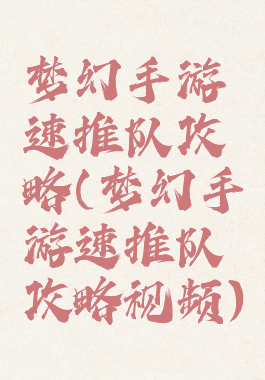 梦幻手游
速推队攻
略(梦幻手
游速推队
攻略视频)